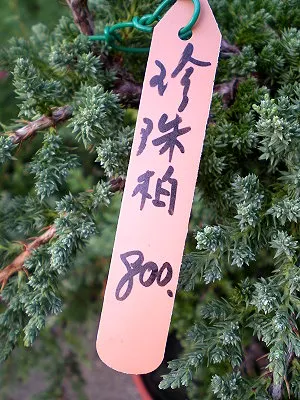 珍珠柏
800.